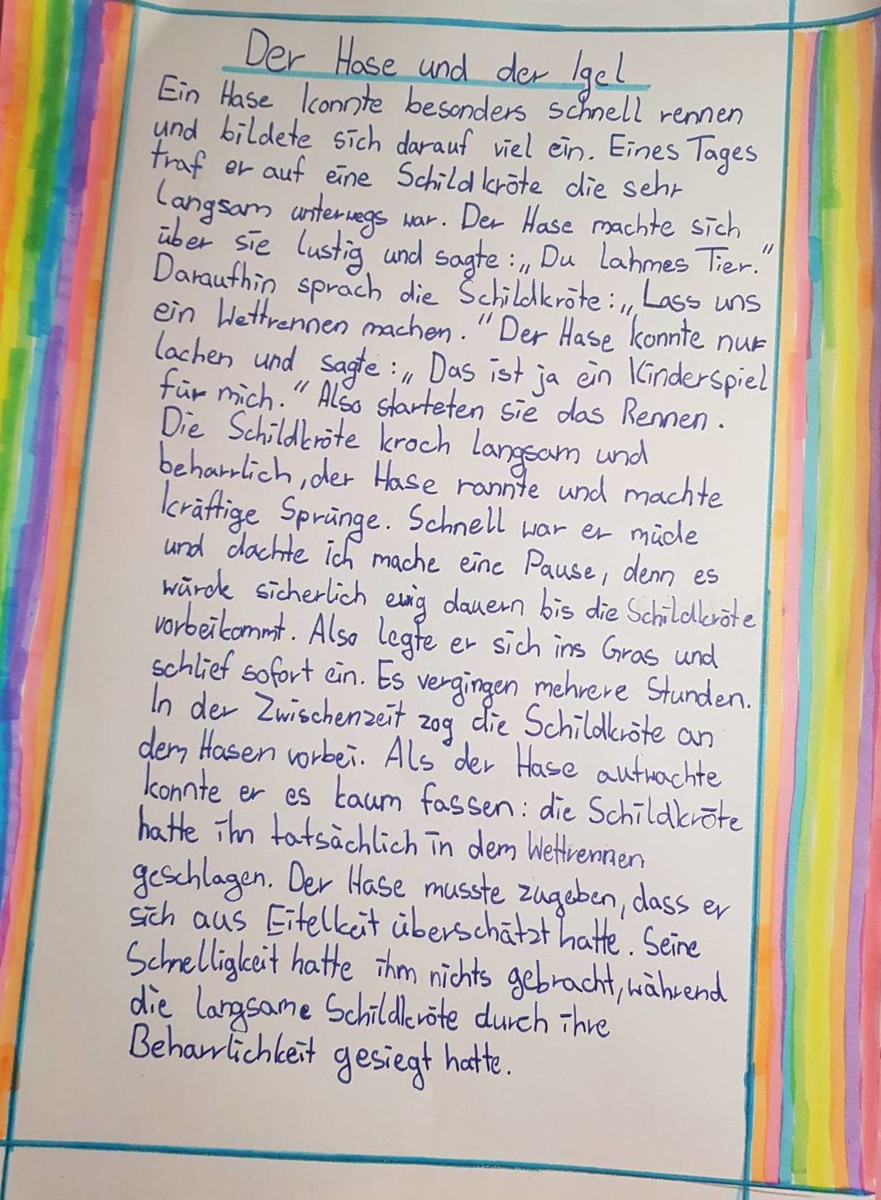 Der Hase und der Igel
Ein Hase konnte besonders schnell rennen
und bildete sich darauf viel ein. Eines Tages
traf er auf eine Schildkröte die sehr
langsam unterwegs war. Der Hase machte sich
über sie lustig und sagte: „Du lahmes Tier."
Daraufhin sprach die Schildkröte: „Lass uns
ein Wettrennen machen." Der Hase konnte nur
lachen und sagte: „Das ist ja ein Kinderspiel
für mich." Also starteten sie das Rennen.
Die Schildkröte kroch langsam und
beharrlich, der Hase rannte und machte
kräftige Sprünge. Schnell war er müde
und dachte ich mache eine Pause, denn es
würde sicherlich ewig dauern bis die Schildkröte
vorbeikommt. Also legte er sich ins Gras und
schlief sofort ein. Es vergingen mehrere Stunden.
In der Zwischenzeit zog die Schildkröte an
dem Hasen vorbei. Als der Hase aufwachte
konnte er es kaum fassen: die Schildkröte
hatte ihn tatsächlich in dem Wettrennen
geschlagen. Der Hase musste zugeben, dass er
sich aus Eitelkeit überschätzt hatte. Seine
Schnelligkeit hatte ihm nichts gebracht, während
die langsame Schildkröte durch ihre
Beharrlichkeit gesiegt hatte.